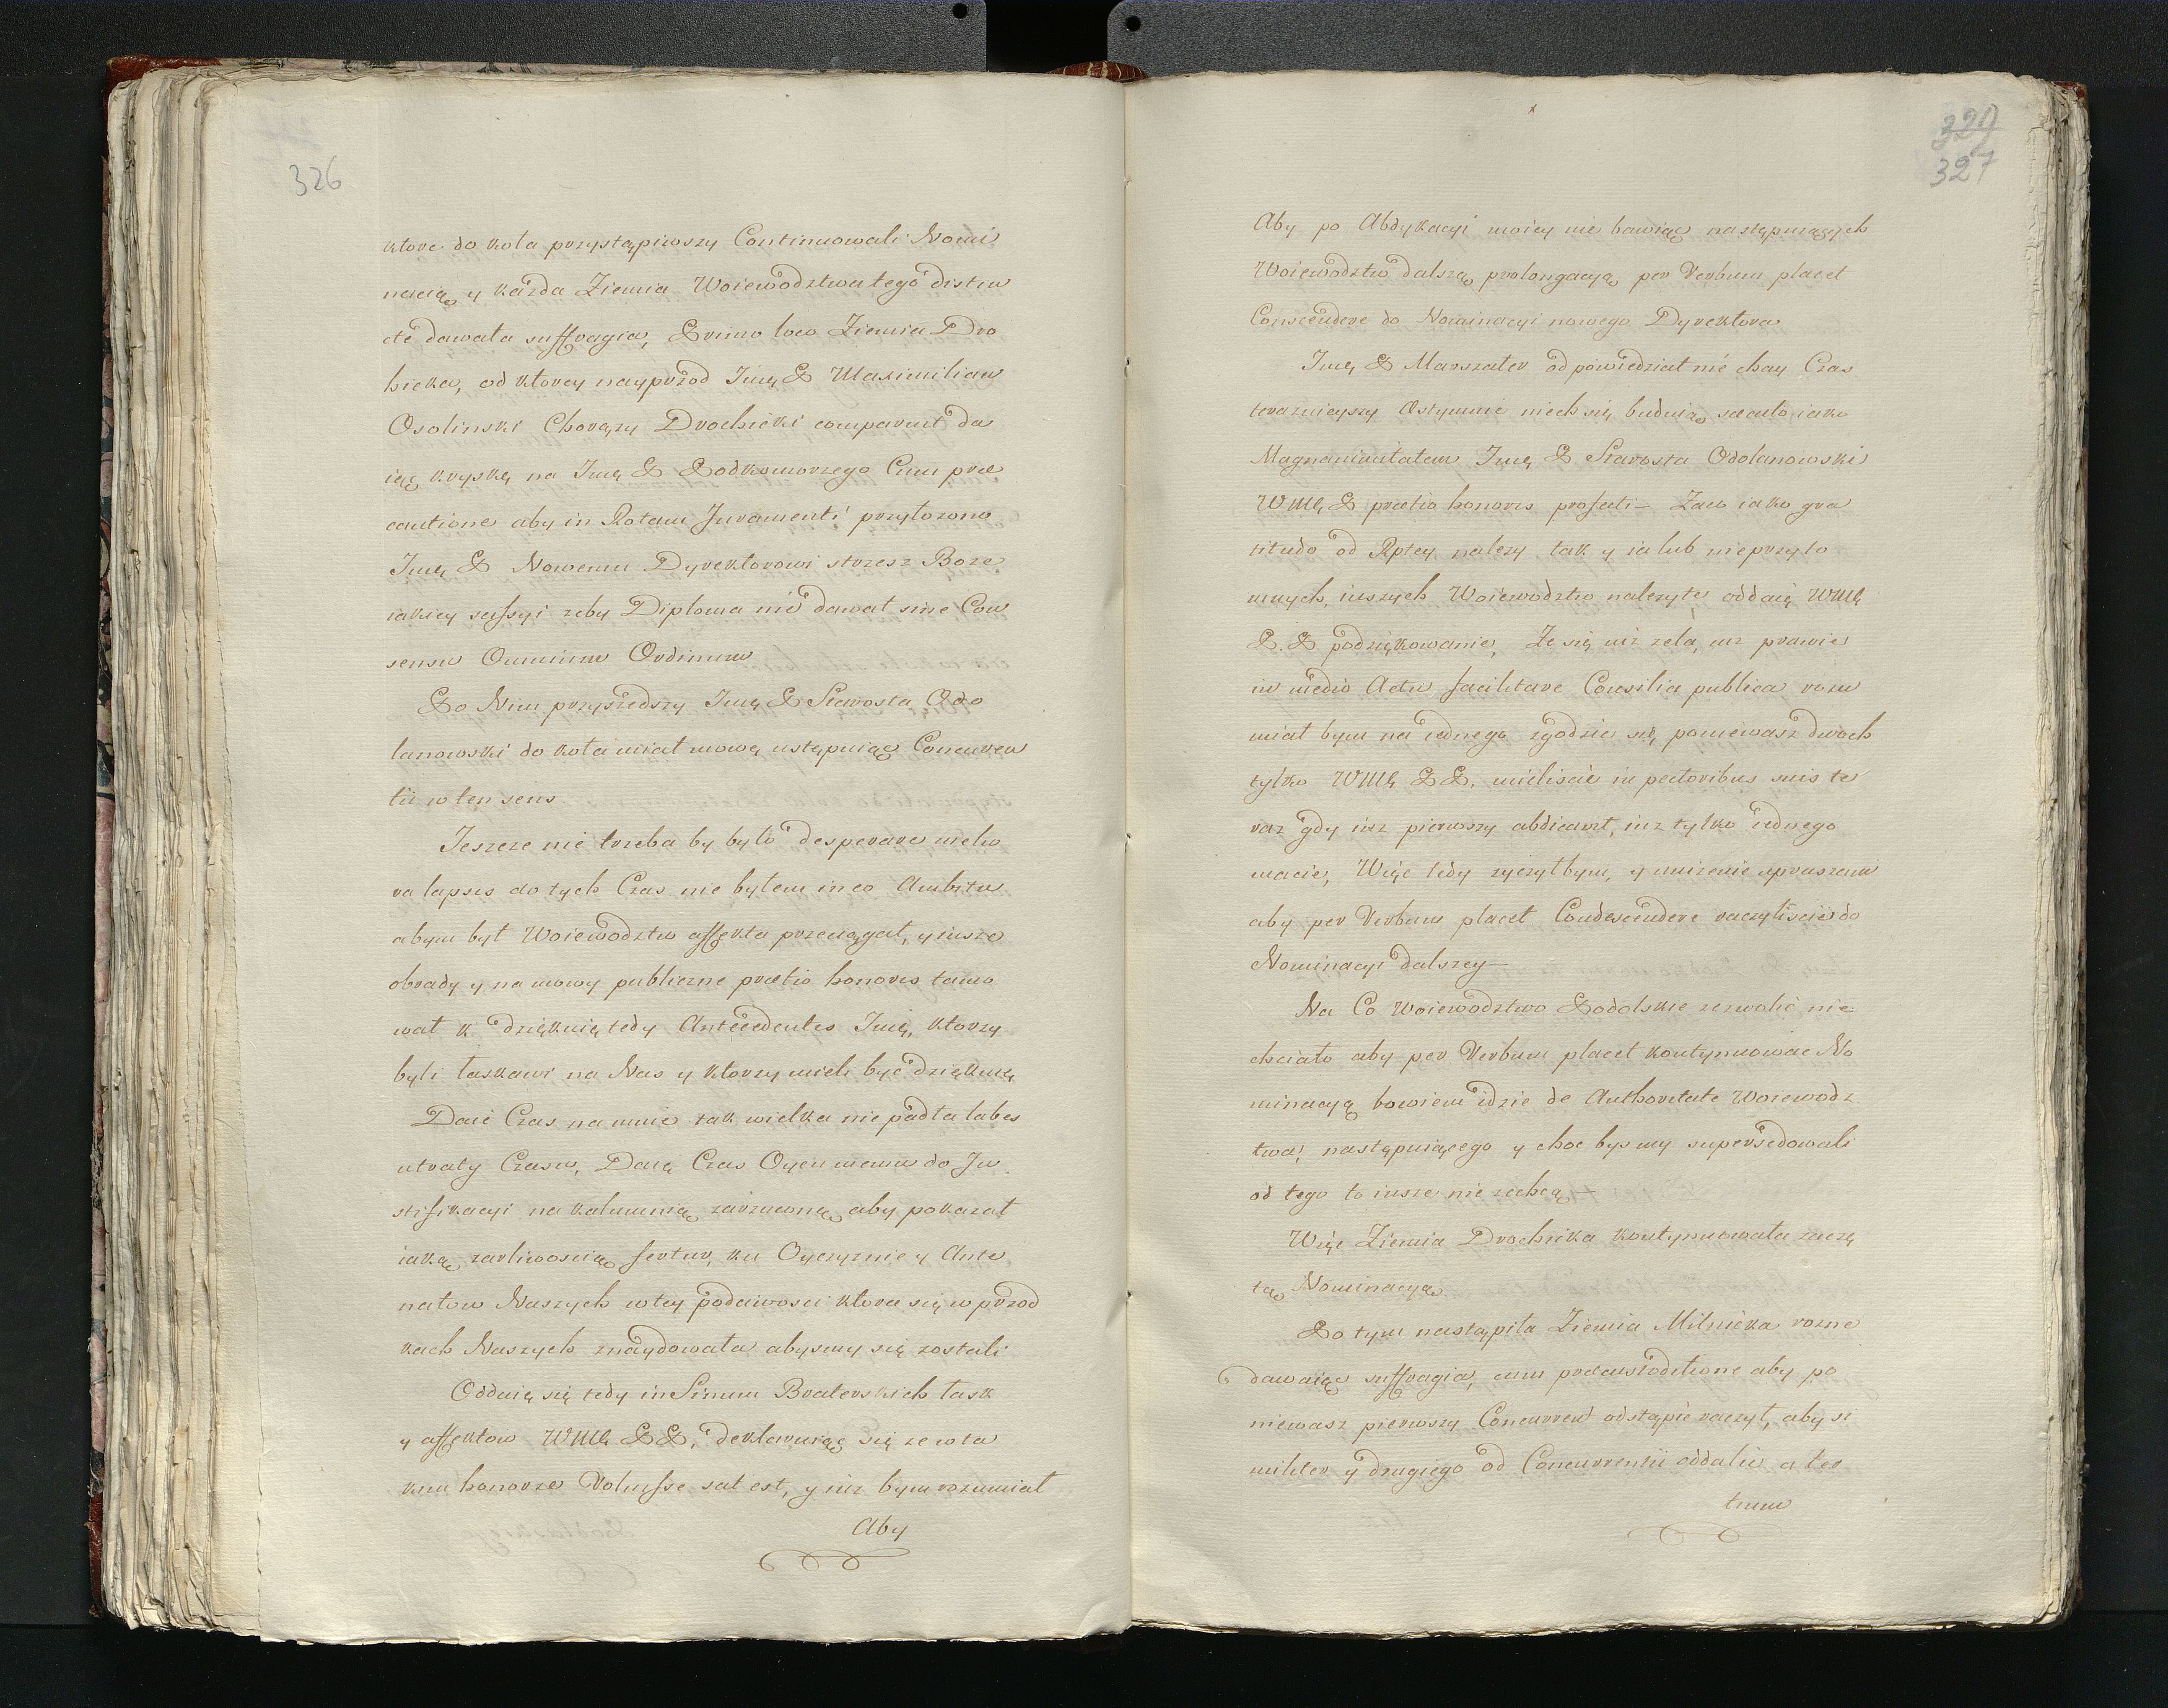 326
ktore do kola przystąpiwszy Continuowali Nomi
nacią y kazda Ziemia Woiewodztwa tego distin
cte dawala suffragia, Primo loco Ziemia Dro
hicka, od ktorey nayprzod Imę P Maximilian
Osolinski Chorązy Drohicki comparuit da
iąc kryskę na Imę P Podkomorzego Cum prae
cautione aby in Rotam Juramenti przylozono
Imę P Nowemu Dyrektorowi strzesz Boze
iakiey scyssyi zeby Diploma nie dawal sine Con
sensu Omnium Ordinum
Po Nim przyszedszy Imę P Starosta Odo
lanowski do kola mial mowę ustępuiąc Concurren
tii w ten sens
Jeszcze nie trzeba by bylo desperare melio
ra lapsis do tych Czas nie bylem in eo Ambitu
abym byl Woiewodztw affekta przeciągal, y insze
obrady y namowy publiczne praetio honoris tamo
wal dziękuię tedy Antecedentes Imę, ktorzy
byli laskawi na Nas y ktorzy mieli być dziękuię
Daie Czas na mnie tak wielka nie padla labes
utraty Czasu, Daię Czas Oycu memu do Ju
stifikacyi na kalumnią zarzuconą aby pokazal
iaką zarliwoscią fertur, ku Oyczyznie y Ante
natow Naszych w tey podciwosci ktora się w przod
kach Naszych znaydowala abysmy się zostali
Oddaię się tedy in Sinum Braterskich lask
y affektow WMę PP, deklaruiąc się ze w ta
kim honorze Voluisse sat est, y iuz bym rozumial
Aby
329
327
Aby po Abdykacyi moiey nie bawiąc następuiących
Woiewodztw dalszą prolongacyą per Verbum placet
Conscendere do Nominacyi nowego Dyrektora
Imę P Marszalek odpowiedzial niechay Czas
terazniejszy Ostymnie niech się buduią saeculo iako
Magnanimitatem Imę P Starosta Odolanowski
WMę P praetio honoris profuti Zaco iako gra
titudo od Rptey nalezy tak y ia lub nieprzyto
mnych, inszych Woiewodztw nalezyte oddaię WMę
P. P podziękowanie, Ze się iuz zela, iuz prawie
in medio Actu facilitare Consilia publica rozu
mial bym na iednego zgodzic się poniewasz dwoch
tylko WMę PP. mieliscie in pectoribus suis te
raz gdy iuz pierwszy abdicavit, iuz tylko iednego
macie, Więc tedy zyczylbym, y unizenie upraszam
aby per Verbum placet Condescendere raczyliscie do
Nominacyi dalszey
Na Co Woiewodztwo Podolskie zezwolić nie
chcialo aby per Verbum placet kontynuowac No
minacyą bowiem idzie de Authoritate Woiewodz
twa, następuiącego y choc bysmy supersedowali
od tego to insze nie zechcą
Więc Ziemia Drochicka kontynuowala zaczę
tą Nominacyą
Po tym nastąpila Ziemia Milnicka rozne
dawaiąc suffragia, cum praecustoditione aby po
niewasz pierwszy Concurrent odstąpic raczyl, aby si
militer y drugiego od Concurrentii oddalic a ter
tium